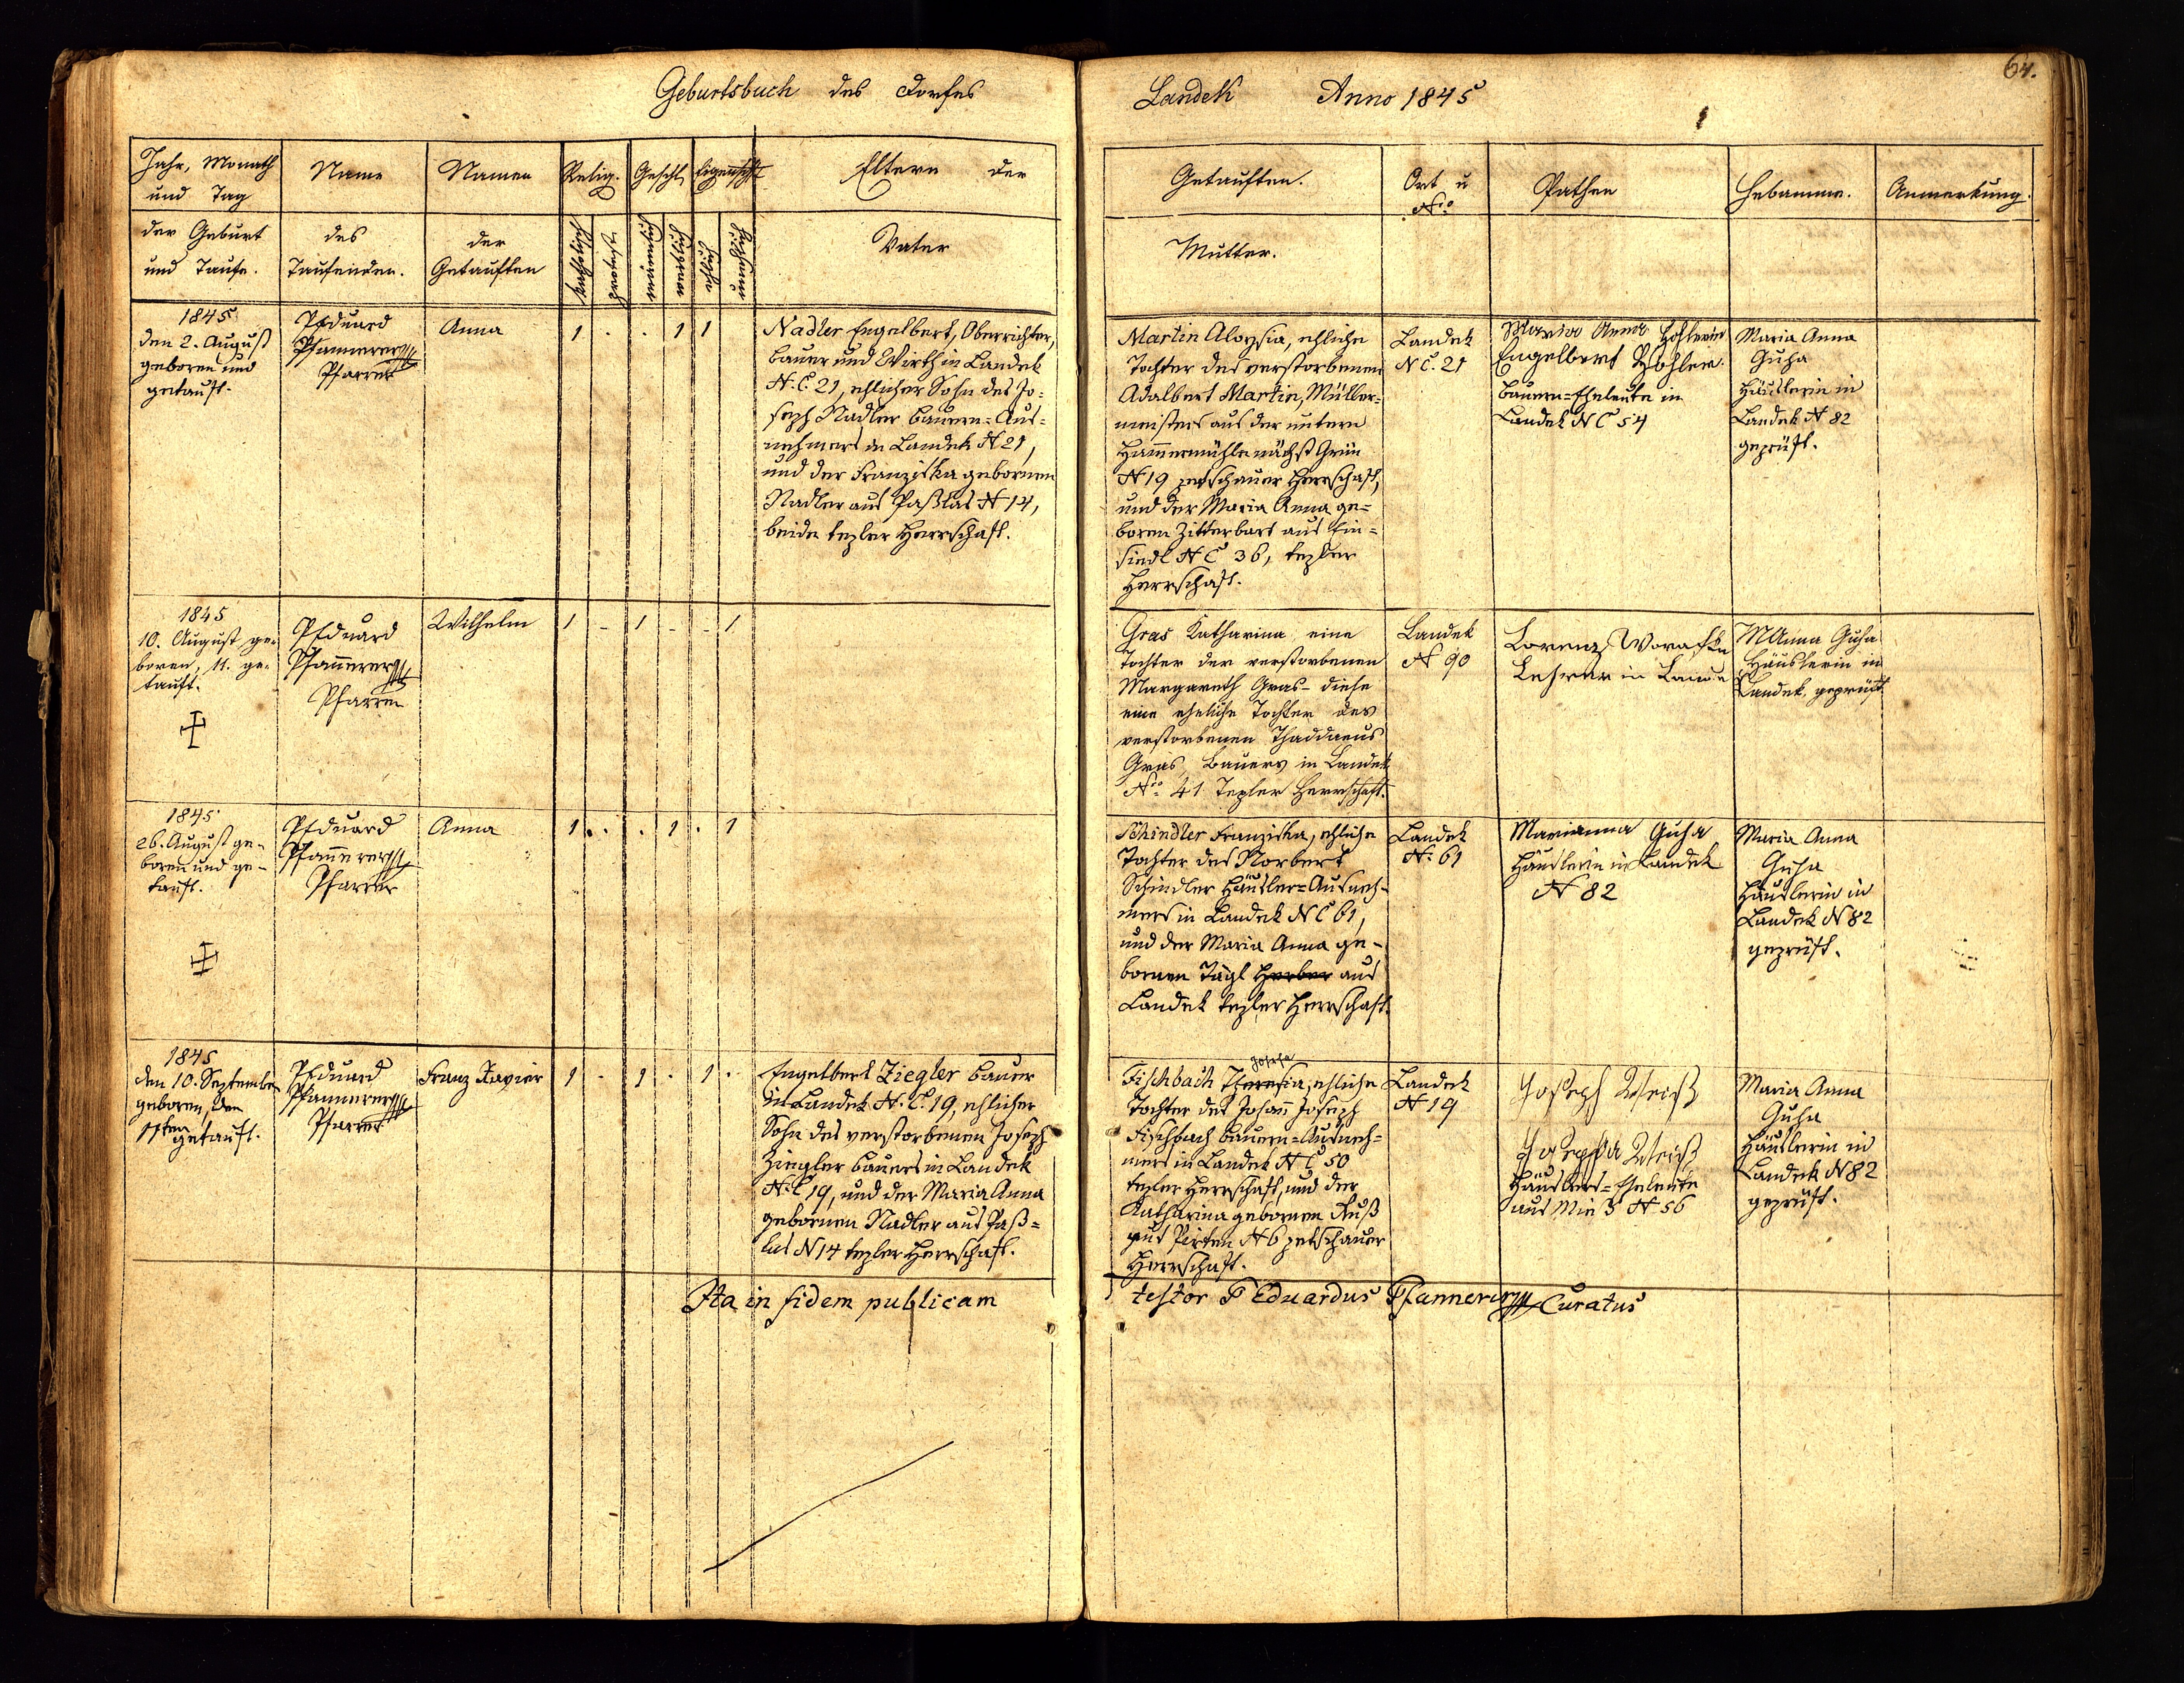 Geburtsbuch des Dorfes
Landek Anno 1845
64.
Jahr, Monath
und Tag
der Geburt
und Taufe.
Name
des
Taufenden.
Namen
der
Getauften
Relig.
katholisch
protest
Geschl
männlich
weiblich
Eigenschft
ehlich
unehlich
Eltern der
Vater
Getauften.
Mutter.
Ort u
Nro
Pathen
Hebamme.
Anmerkung.
1845
den 2. August
geboren und
getauft.
P Eduard
Pfannerer
Pfarrer
Anna
1 . . 1 1
Nadler Engelbert, Oberrichter,
Bauer und Wirth in Landek
N. C. 21, ehlicher Sohn des Jo=
seph Nadler Bauern=Aus=
nehmers in Landek N 21,
und der Franziska gebornen
Nadler aus Paßlas N 14,
beide tepler Herrschaft.
Martin Aloysia, ehliche
Tochter des verstorbenen
Adalbert Martin, Müller=
meisters aus der untern
Hammermühle nächst Grün
N 19 petschauer Herrschaft,
und der Maria Anna ge=
boren Zitterbart aus Ein=
siedl N C 36, tepler
Herrschaft.
Landek
N C. 21
Maria Anna
Engelbert
Bauern=Eheleute in
Landek N C 54
Maria Anna
Guha
Häuslerin in
Landek N 82
geprüft.
1845
10. August ge=
boren, 11. ge=
tauft.
P Eduard
Pfannerer
Pfarrer
Wilhelm
1 - 1 - - 1
Gras Katharina eine
Tochter der verstorbenen
Margareth Gras - diese
eine eheliche Tochter des
verstorbenen Thaddaeus
Gras, Bauers in Landek
Nro 41 Tepler Herrschaft.
Landek
N 90
Lorenz
Lehrer in
M Anna Guha
Häuslerin in
Landek, geprüft
1845
26. August ge=
boren und ge=
tauft.
P Eduard
Pfannerer
Pfarrer
Anna
1 . . 1 . 1
Schindler Franziska, ehliche
Tochter des Norbert
Schindler Häusler=Ausneh=
mers in Landek N C 61,
und der Maria Anna ge=
bornen Tägl Herber aus
Landek tepler Herrschaft.
Landek
N. 61
Marianna Guha
Häuslerin in Landek
N 82
Maria Anna
Guha
Häuslerin in
Landek N 82
geprüft.
1845
den 10. September
geboren, den
11ten getauft.
P Eduard
Pfannerer
Pfarrer
Franz Xavier
1 . 1 . 1 .
Engelbert Ziegler Bauer
in Landek N. C. 19, ehlicher
Sohn des verstorbenen Joseph
Ziegler Bauers in Landek
N. C 19, und der Maria Anna
gebornen Nadler aus Paß=
las N 14 tepler Herrschaft.
Josefa
Fischbach Theresia, ehliche
Tochter des Johann Joseph
Fischbach Bauern=Ausneh=
mers in Landek N C 50
tepler Herrschaft, und der
Katharina gebornen Ruß
aus Pirten N 6 petschauer
Herrschaft.
Landek
N 19
Joseph Weiß
Josepha Weiß
Häuslers=Eheleute
aus N 56
Maria Anna
Guha
Häuslerin in
Landek N 82
geprüft.
Ita in fidem publicam
testor P Eduardus Pfannerer Curatus